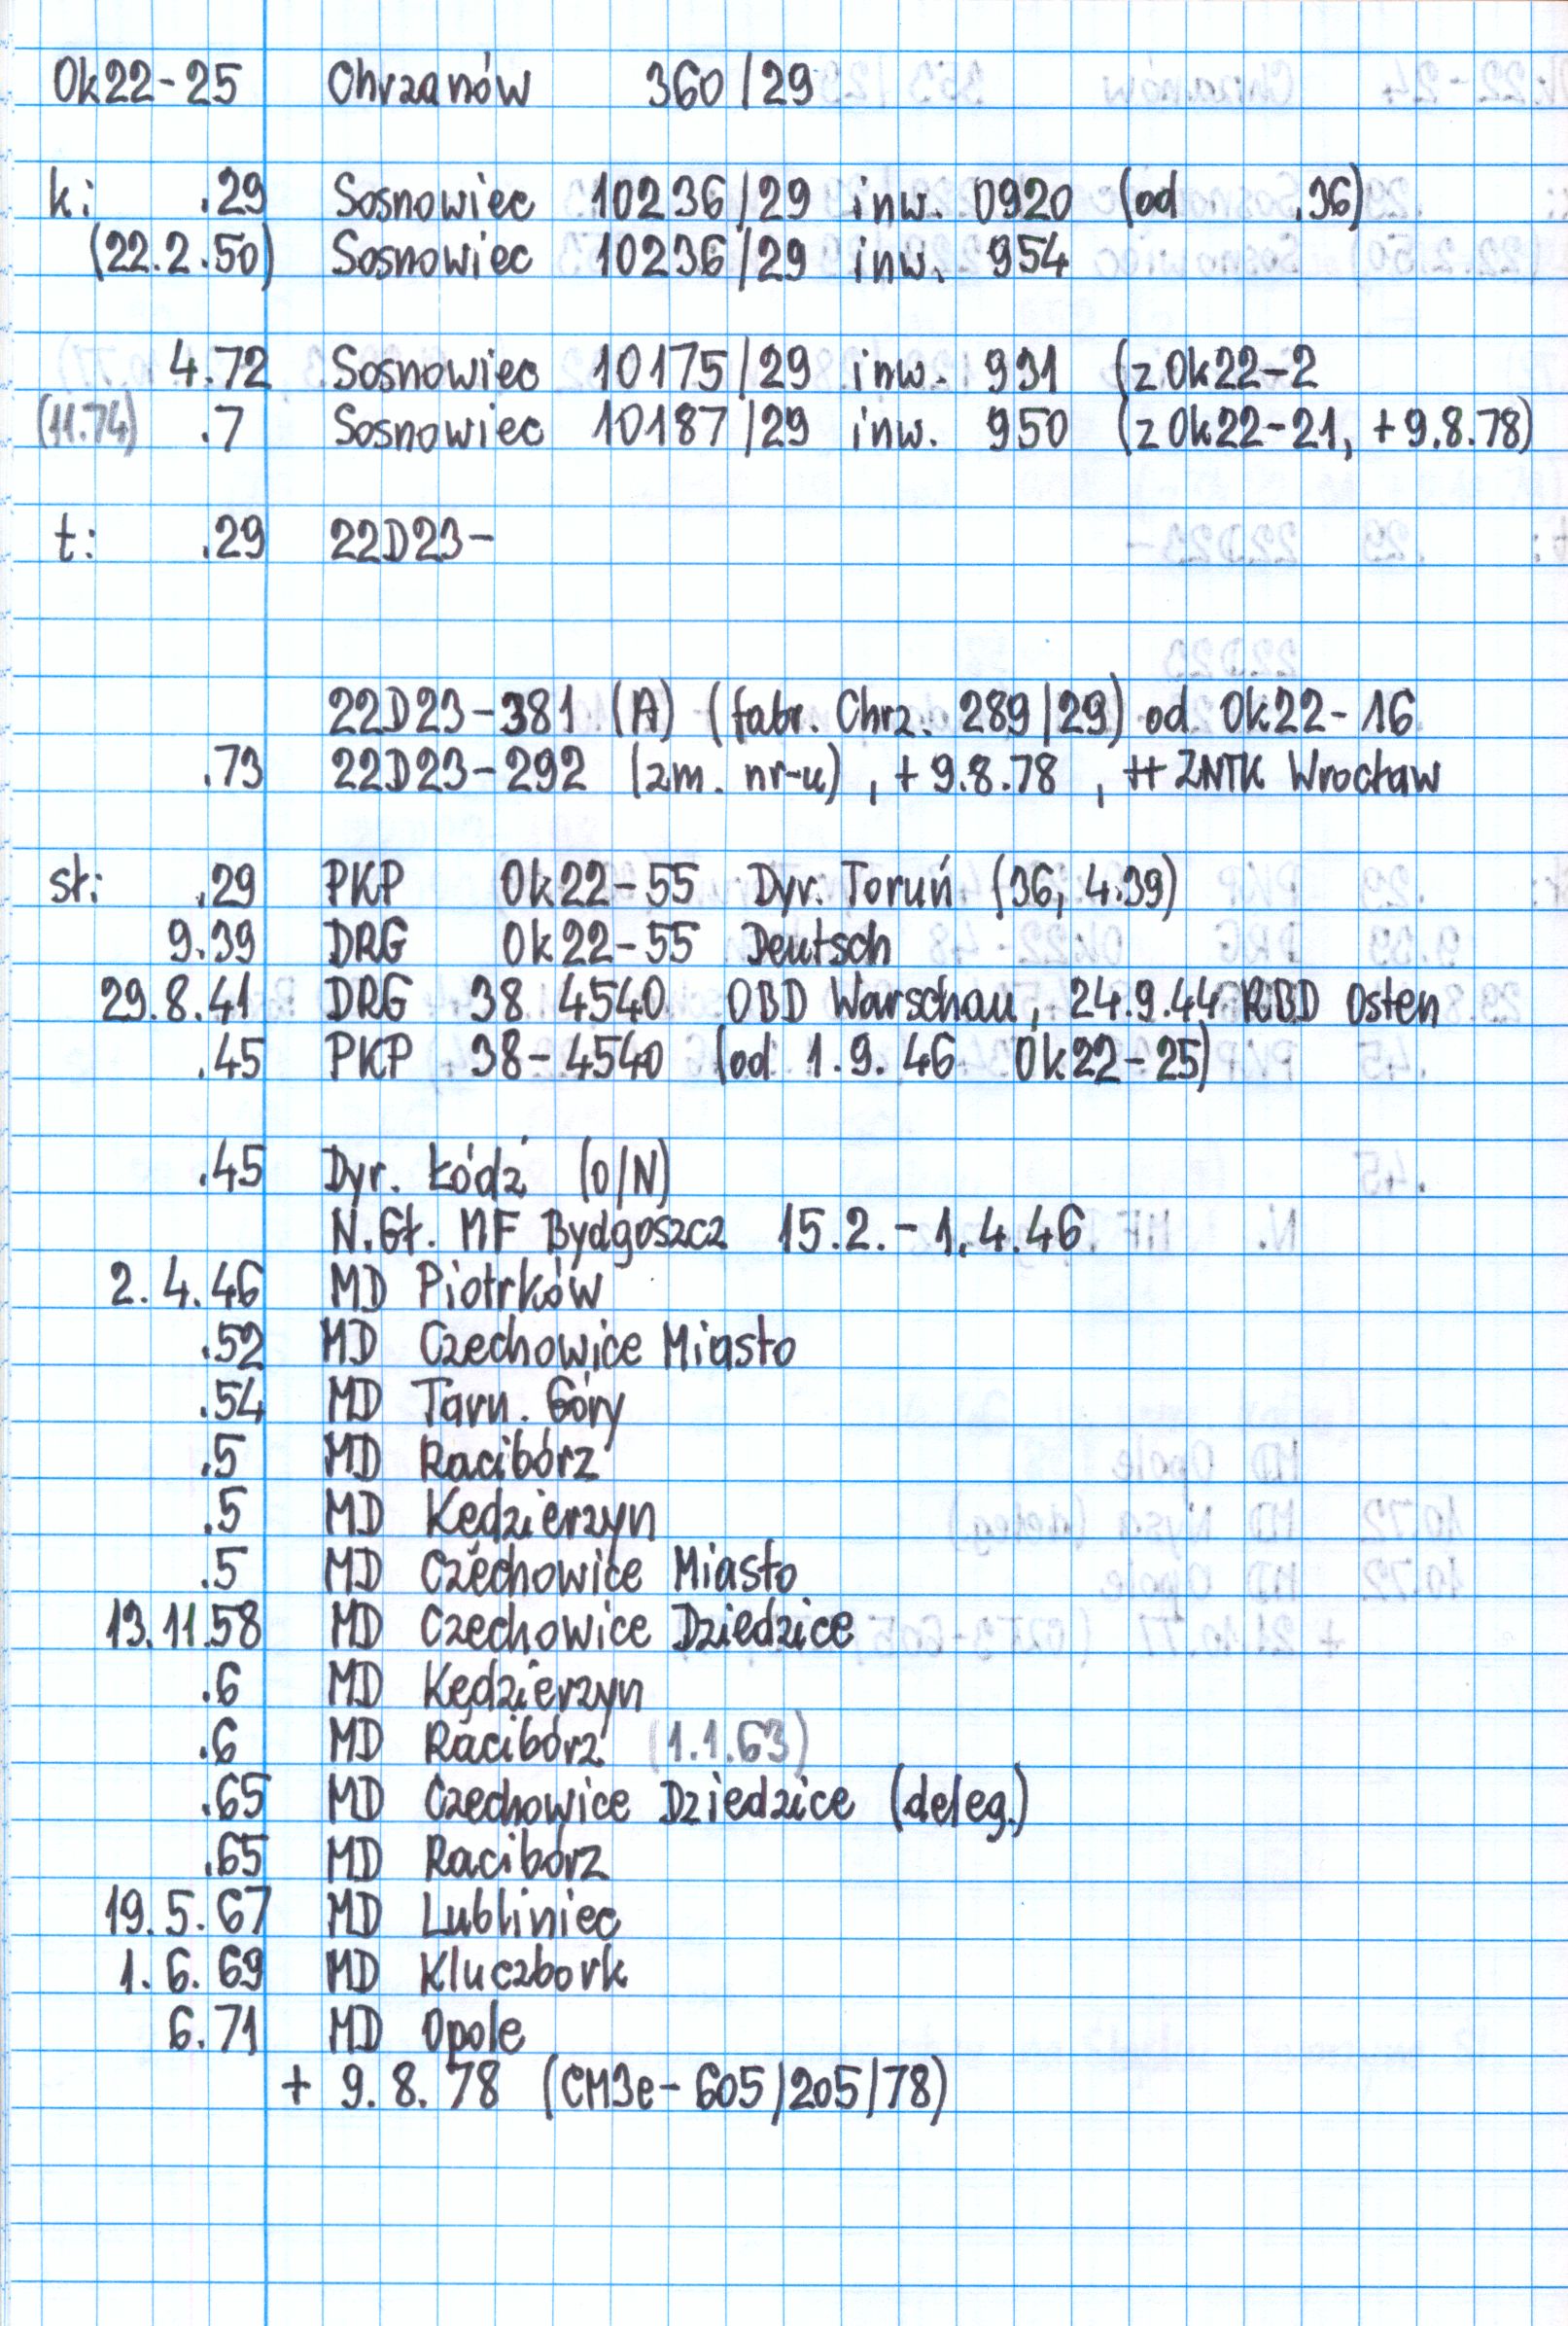 Ok22-25 Chrzanów 360/29
k: .29 Sosnowiec 10236/29 inw. 0920 (od .36)
(22.2.50) Sosnowiec 10236/29 inw. 954
4.72 Sosnowiec 10175/29 inw. 931 (z Ok22-2
(11.74) .7 Sosnowiec 10187/29 inw. 950 (z Ok22-21, +9.8.78)
t: .29 22D23-
22D23-381 (A) (fabr. Chrz. 289/29) od Ok22-16
.73 22D23-292 (zm. nr-u), +9.8.78, ++ ZNTK Wrocław
sł: .29 PKP Ok22-55 Dyr. Toruń (36, 4.39)
9.39 DRG Ok22-55 Deutsch
29.8.41 DRG 38 4540 OBD Warschau, 24.9.44 RBD Osten
.45 PKP 38-4540 (od 1.9.46 Ok22-25)
.45 Dyr. Łódź (O/N)
N.Gł. MF Bydgoszcz 15.2.-1.4.46
2.4.46 MD Piotrków
.52 MD Czechowice Miasto
.54 MD Tarn. Góry
.5 MD Racibórz
.5 MD Kędzierzyn
.5 MD Czechowice Miasto
13.11.58 MD Czechowice Dziedzice
.6 MD Kędzierzyn
.6 MD Racibórz (1.1.63)
.65 MD Czechowice Dziedzice (deleg.)
.65 MD Racibórz
19.5.67 MD Lubliniec
1.6.69 MD Kluczbork
6.71 MD Opole
+ 9.8.78 (CM3e-605/205/78)